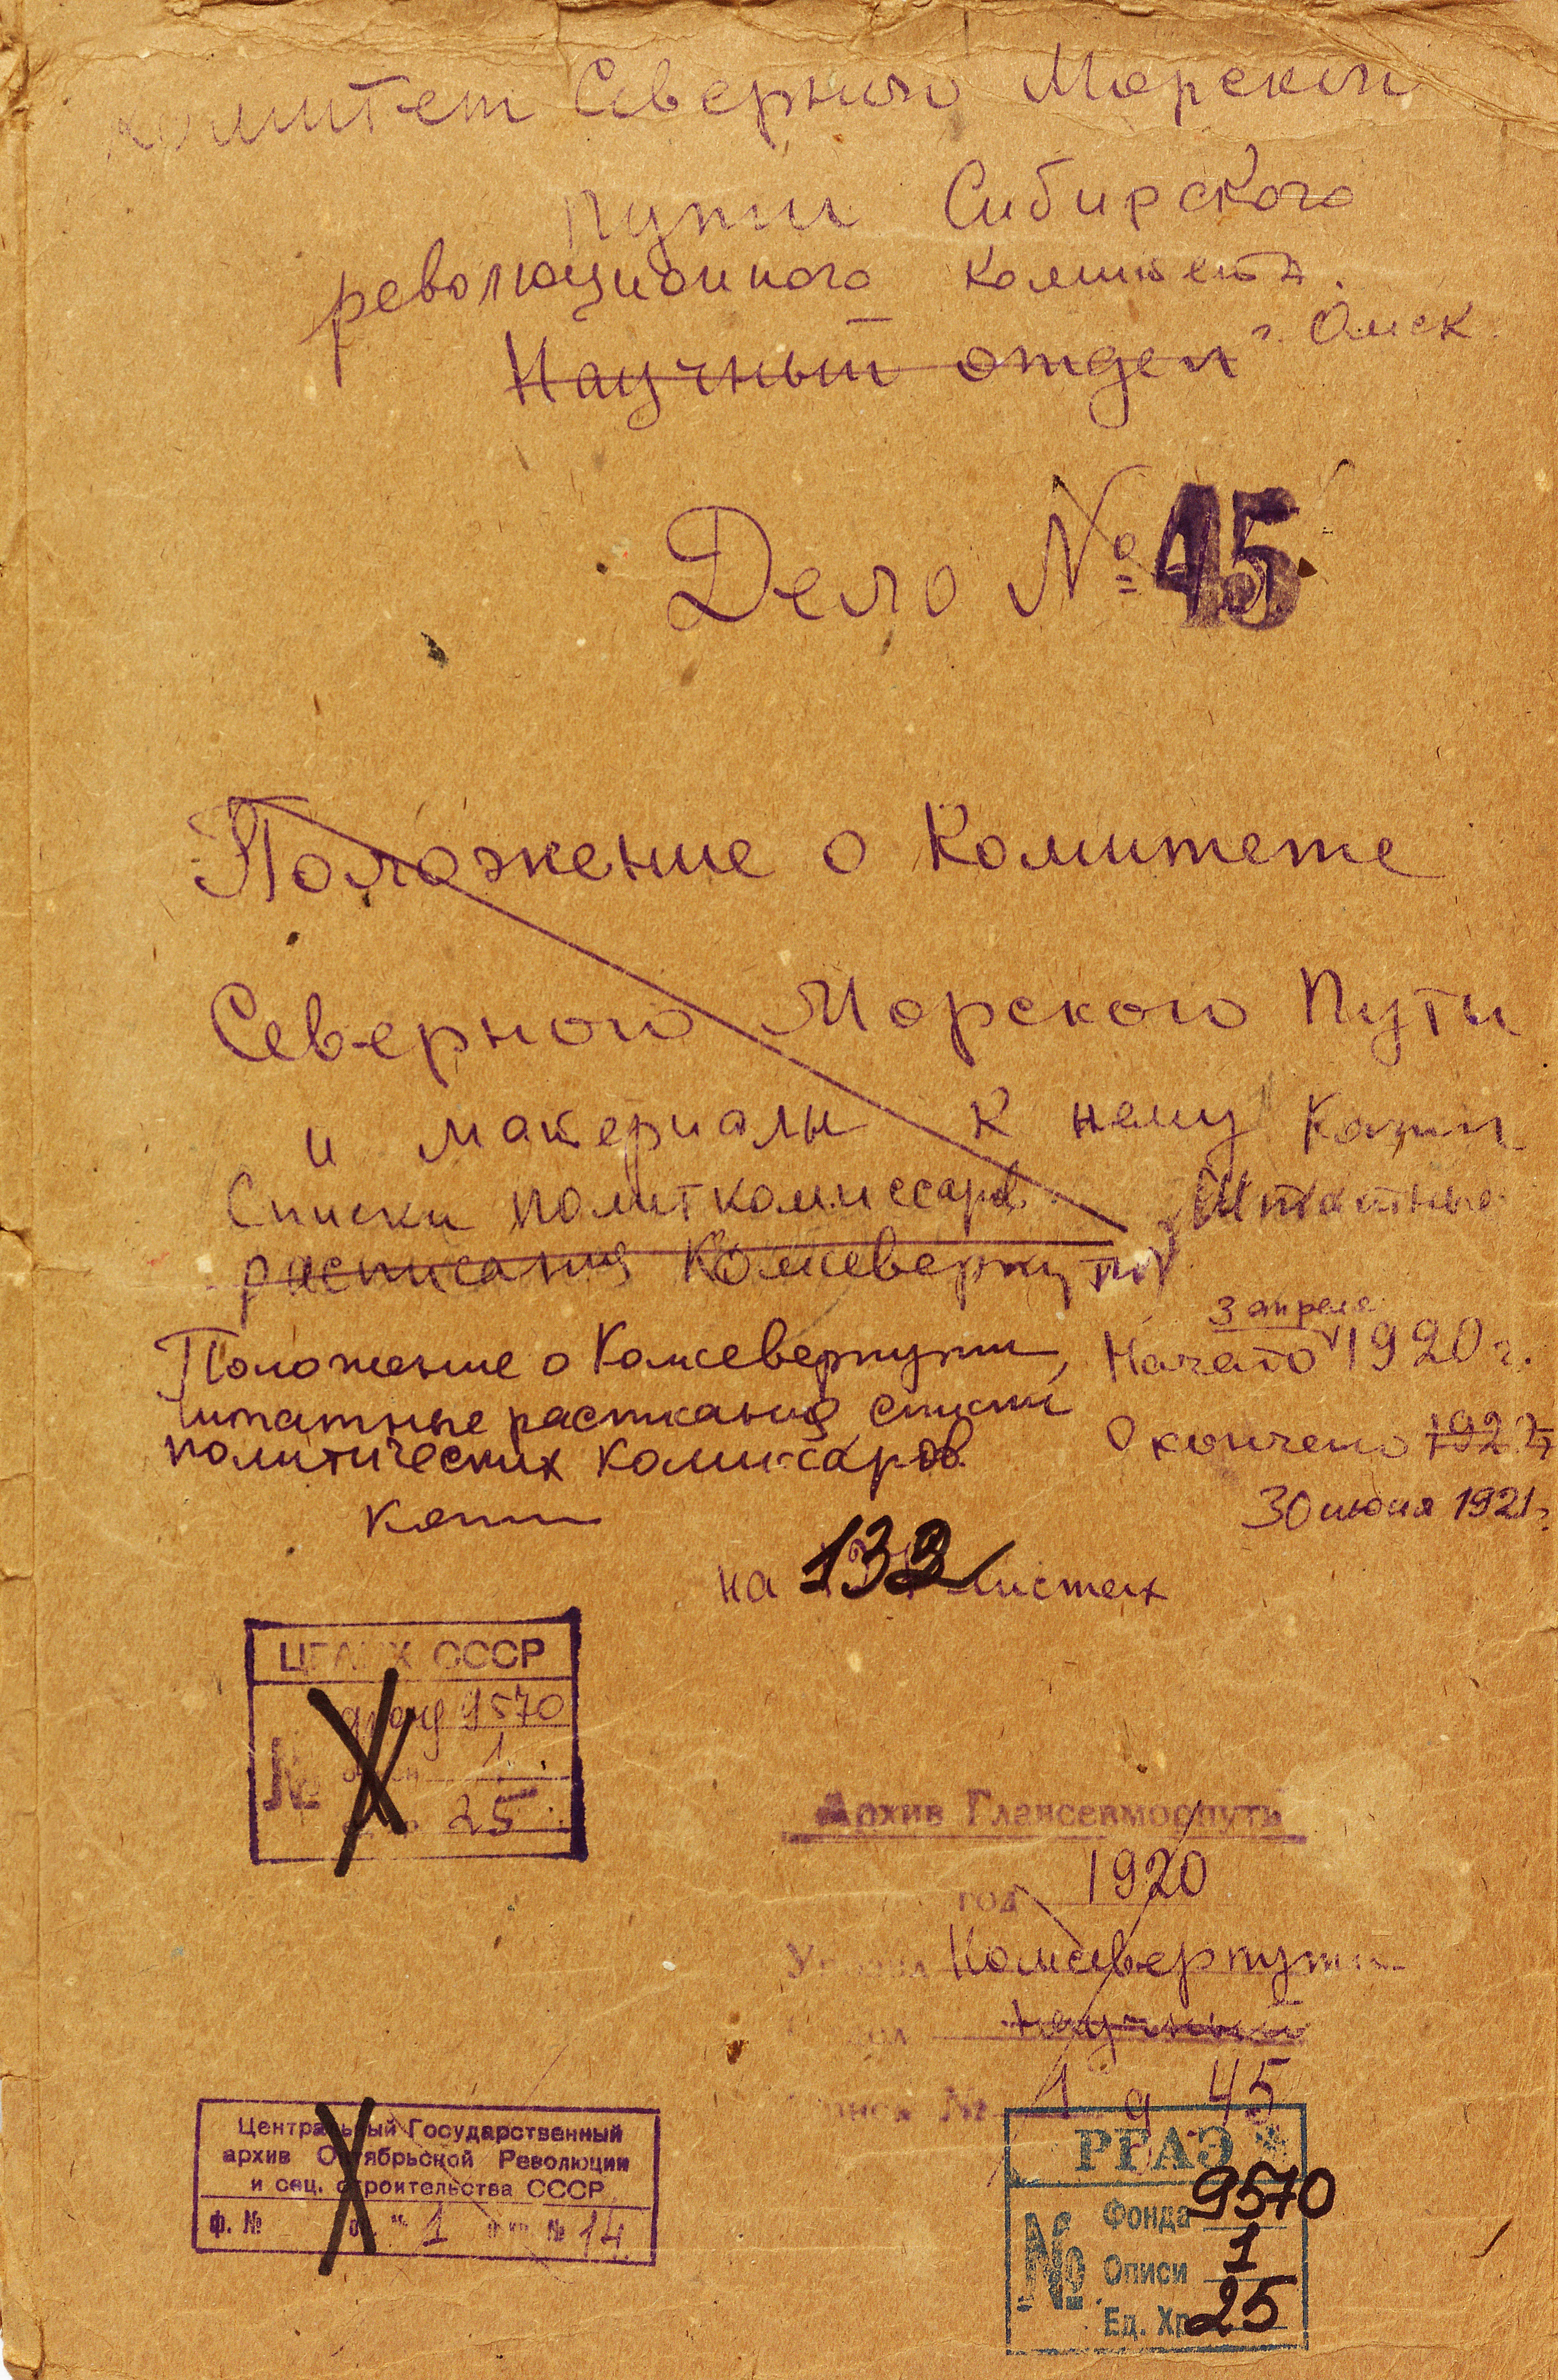 Комитет Северного Морского
пути Сибирского
революционного комитета.
г. Омск
Научный отдел
Дело № 45
Положение о Комитете
Северного Морского Пути
и материалы к нему копии
Списки политкомиссаров. Штатные
расписания Комсеверпути
Положение о Комсеверпути,
штатные расписания, списки
политических комиссаров.
копии
3 апреля
Начато 1920 г.
Окончено 192
30 июня 1921 г.
на 132 листах
ЦГАНХ СССР
фонд 9570
№ 1
25
Архив Главсевморпути
год 1920
Комсеверпути
Научный
№ 1 д 45
Центральный Государственный
архив Октябрьской Революции
и соц. строительства СССР
ф. № оп. 1 № 14
РГАЭ
№
Фонда 9570
Описи 1
Ед. Хр. 25